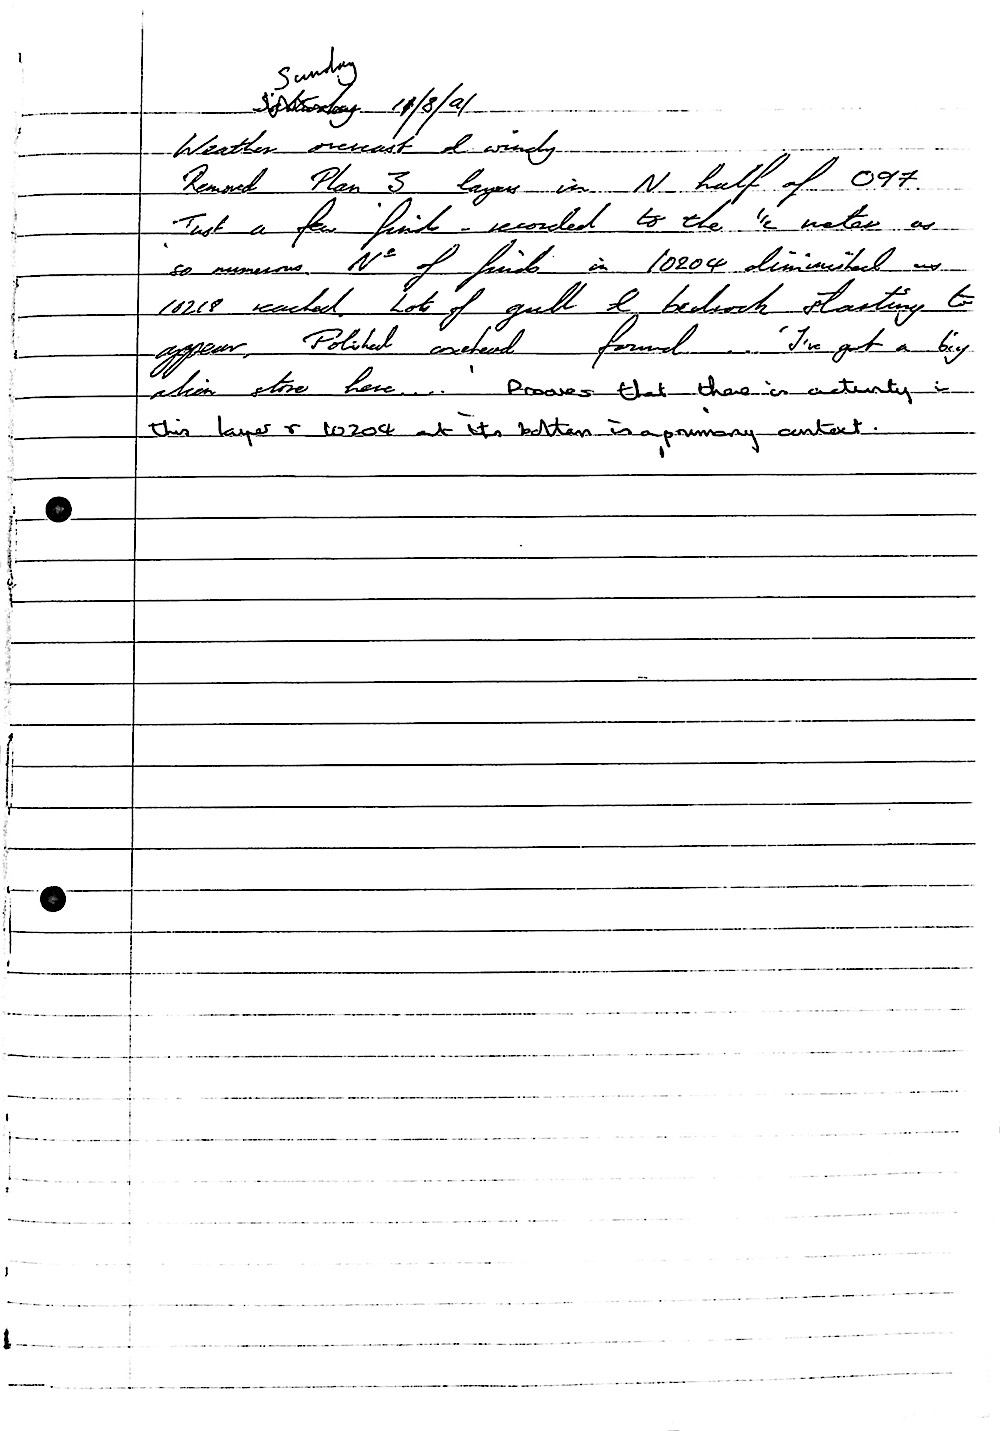 Sunday
Saturday 11/8/91
Weather overcast & windy
Removed Plan 3 layers in N half of 097.
Just a few finds - recorded to the 1/4 metre as
so numerous. Nº of finds in 10204 diminished as
10218 reached. Lots of gull & bedrock starting to
appear. Polished axehead found ... 'I've got a big
shiny stone here ....' Prooves that there is activity in
this layer & 10204 at its bottom is a primary context.